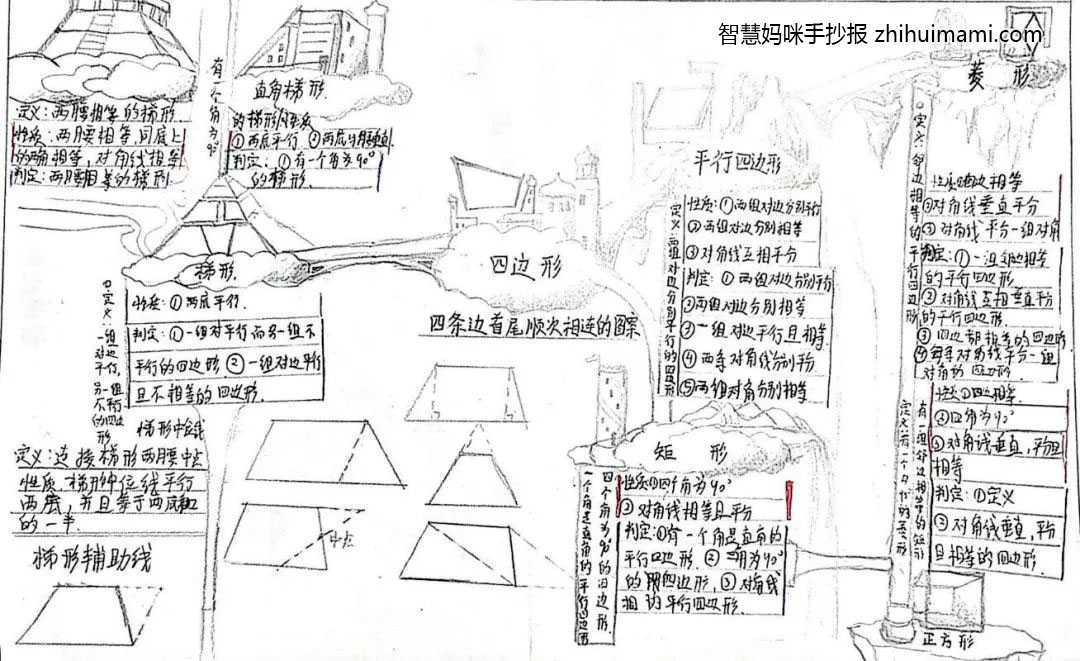 智慧妈咪手抄报 zhihuimami.com
定义：两腰相等的梯形.
性质：两腰相等,同底上
的角相等，对角线相等
判定：两腰相等的梯形
有一个角为90°
直角梯形.
的梯形
①两底平行.
判定：①有一个角为90°
的梯形.
梯形
定义：一组对边平行，另一组不平行的四边形
性质：①两底平行.
判定：①一组对平行而另一组不
平行的四边形.②一组对边平行
且不相等的四边形.
梯形中位线
定义：连接梯形两腰中点
性质.梯形中位线平行
两底，并且等于两底和
的一半.
梯形辅助线
中点
四边形
四条边首尾顺次相连的图案
平行四边形
定义：两组对边分别平行的四边形
性质：①两组对边分别平行
②两组对边分别相等
③对角线互相平分
判定：①两组对边分别平行
②两组对边分别相等
③一组对边平行且相等
④两条对角线分别平
⑤两组对角分别相等
矩形
四个角为90°的四边形.
一个角是直角的平行四边形
性质①四个角为90°
②对角线相等且平分
判定：①有一个角是直角的
平行四边形.②三角为90°
的四边形，③对角线
相 的平行四边形.
菱形
定义：邻边相等的平行四边形
性质①四边相等
②对角线垂直平分
③对角线平分一组对角
判定：①一组邻边相等
的平行四边形.
②对角线互相垂直平分
的平行四边形.
③四边都相等的四边形.
④每条对角线平分一组
对角的四边形.
有一组邻边相等的矩形
定义：有一个角90°的菱形
性质①四边相等.
②四角为90°
③对角线垂直，平分且
相等
判定：①定义
②对角线垂直，平分
且相等的四边形.
正方形